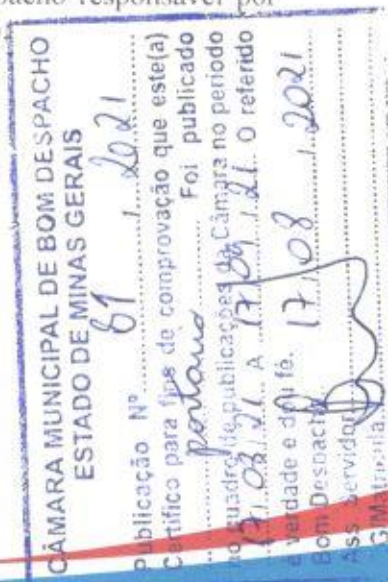 pacho responsável por
CÂMARA MUNICIPAL DE BOM DESPACHO
ESTADO DE MINAS GERAIS
Publicação Nº 61 / 2021
Certifico para fins de comprovação que este(a)
portaria Foi publicado
no quadro de publicações da Câmara no período
17, 08, 21 A 17, 09, 21. O referido
é verdade e dou fé.
Bom Despacho 17, 08, 2021
Ass. Servidor